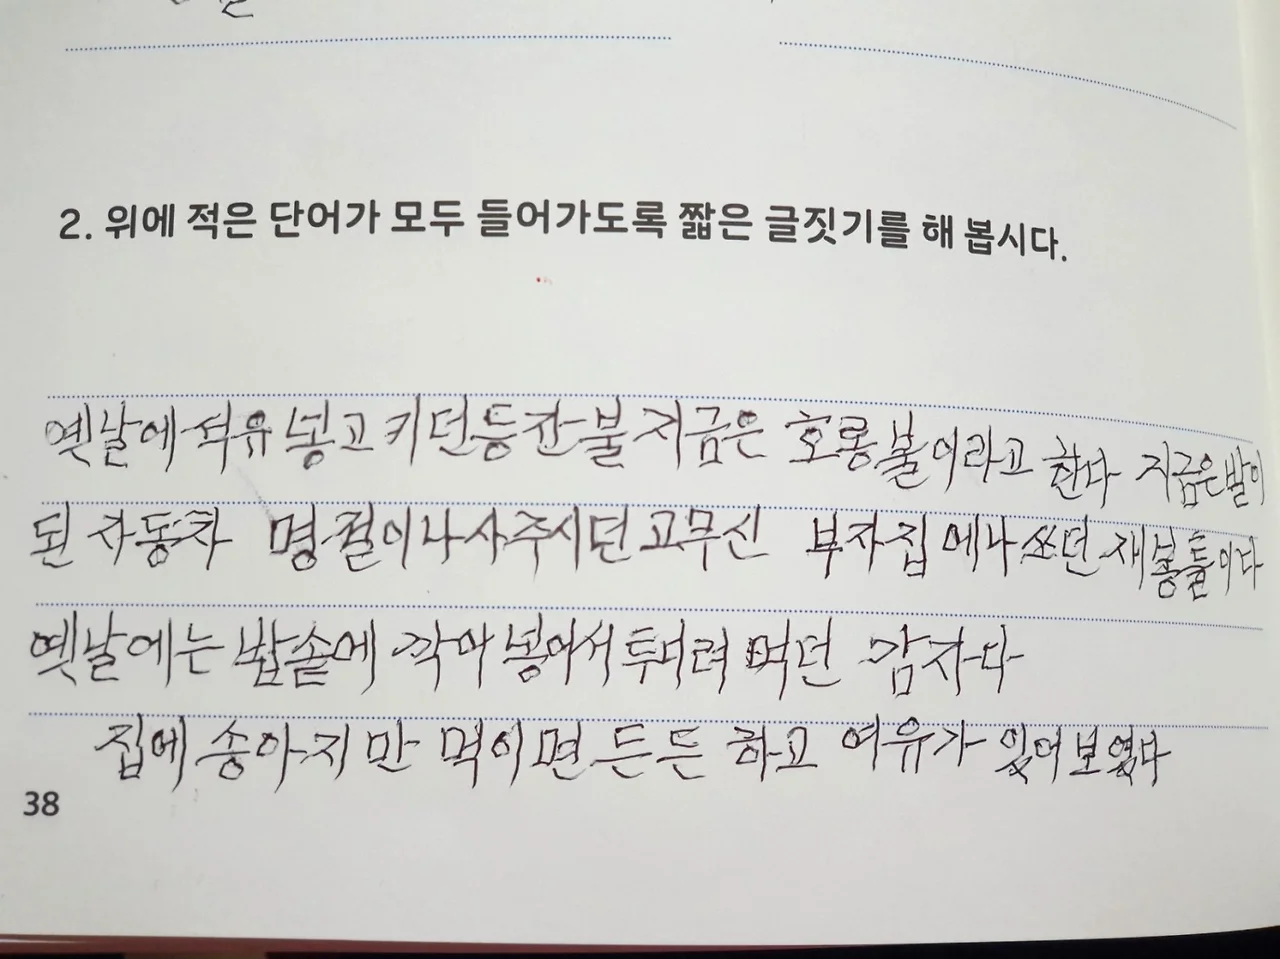 2. 위에 적은 단어가 모두 들어가도록 짧은 글짓기를 해 봅시다.
옛날에 석유 넣고 키던 등잔불 지금은 호롱불이라고 한다 지금은 발이
된 자동차 명절이나 사주시던 고무신 부자집에나 쓰던 재봉틀이다
옛날에는 밥솥에 깍아 넣어서 투더려 먹던 감자다
집에 송아지만 먹이면 든든하고 여유가 있어 보였다
38